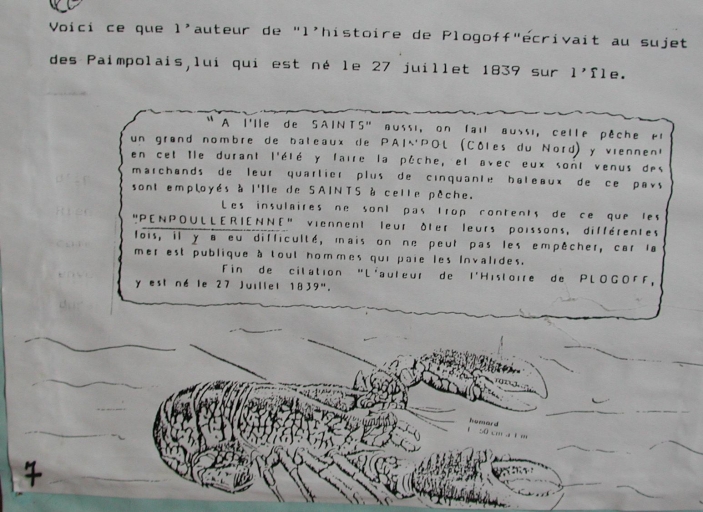 Voici ce que l'auteur de "l'histoire de Plogoff"écrivait au sujet
des Paimpolais,lui qui est né le 27 juillet 1839 sur l'île.
"A l'Ile de SAINTS" aussi, on fait aussi, cette pêche et
un grand nombre de bateaux de PAIMPOL (Côtes du Nord) y viennent
en cet Ile durant l'été y faire la pêche, et avec eux sont venus des
marchands de leur quartier plus de cinquante bateaux de ce pays
sont employés à l'Ile de SAINTS à cette pêche.
Les insulaires ne sont pas trop contents de ce que les
"PENPOULLERIENNE" viennent leur ôter leurs poissons, différentes
fois, il y a eu difficulté, mais on ne peut pas les empêcher, car la
mer est publique à tout hommes qui paie les Invalides.
Fin de citation "L'auteur de l'Histoire de PLOGOFF,
y est né le 27 Juillet 1839".
homard
50 cm à 1 m
7